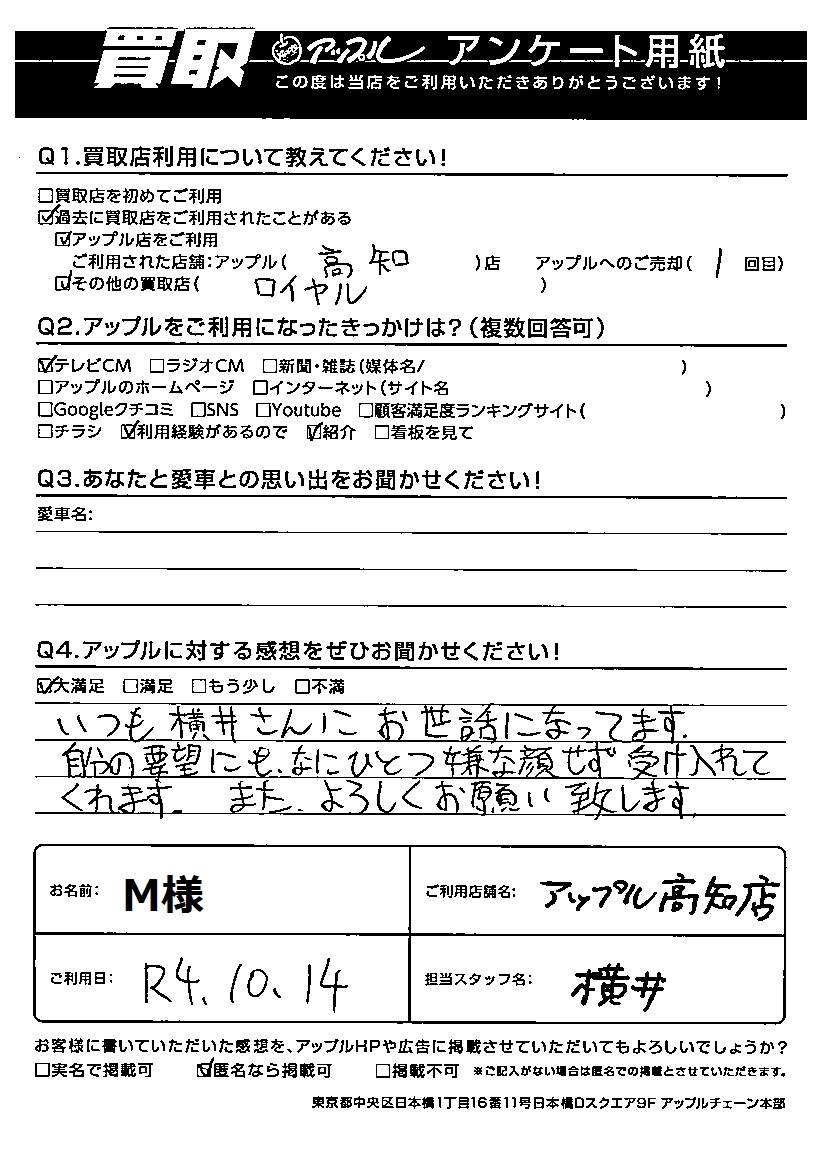 買取 アップル アンケート用紙
この度は当店をご利用いただきありがとうございます!
Q1.買取店利用について教えてください!
□買取店を初めてご利用
☑過去に買取店をご利用されたことがある
☑アップル店をご利用
ご利用された店舗:アップル( 高知 )店 アップルへのご売却( 1 回目)
☑その他の買取店( ロイヤル )
Q2.アップルをご利用になったきっかけは?(複数回答可)
☑テレビCM □ラジオCM □新聞・雑誌(媒体名/ )
□アップルのホームページ □インターネット(サイト名 )
□Googleクチコミ □SNS □Youtube □顧客満足度ランキングサイト( )
□チラシ ☑利用経験があるので ☑紹介 □看板を見て
Q3.あなたと愛車との思い出をお聞かせください!
愛車名:
Q4.アップルに対する感想をぜひお聞かせください!
☑大満足 □満足 □もう少し □不満
いつも横井さんにお世話になってます.
自分の要望にも、なにひとつ嫌な顔せず受け入れて
くれます。また、よろしくお願い致します.
お名前: M様 ご利用店舗名: アップル高知店
ご利用日: R4、10、14 担当スタッフ名: 横井
お客様に書いていただいた感想を、アップルHPや広告に掲載させていただいてもよろしいでしょうか?
□実名で掲載可 ☑匿名なら掲載可 □掲載不可 ※ご記入がない場合は匿名での掲載とさせていただきます。
東京都中央区日本橋1丁目16番11号日本橋Dスクエア9F アップルチェーン本部